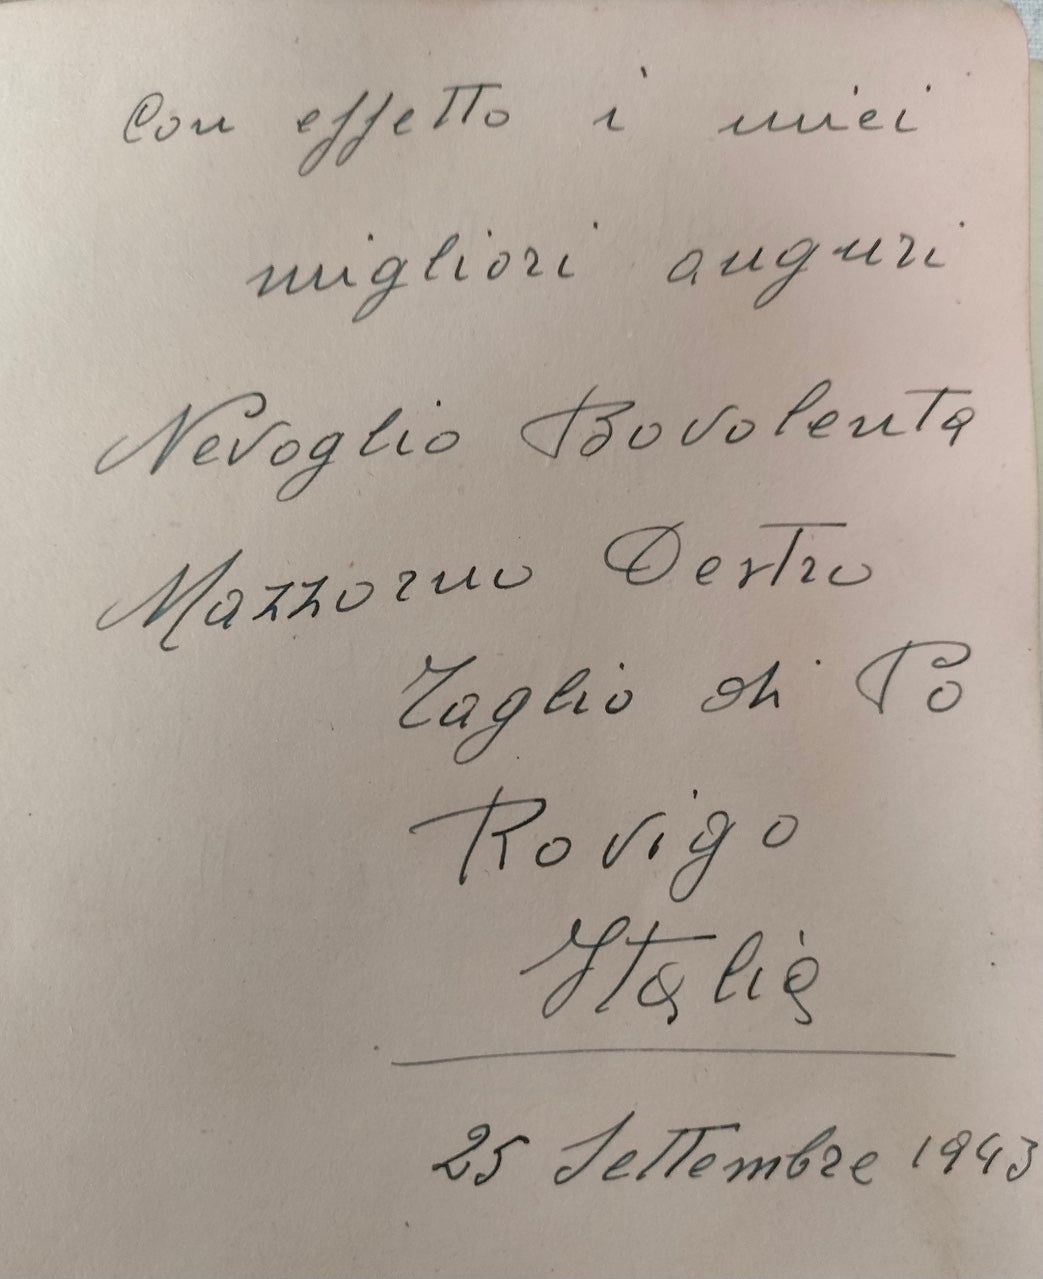 Con effetto i miei
migliori auguri
Nevoglio Bovolenta
Mazzorno Destro
Taglio di Po
Rovigo
Italia
25 Settembre 1943